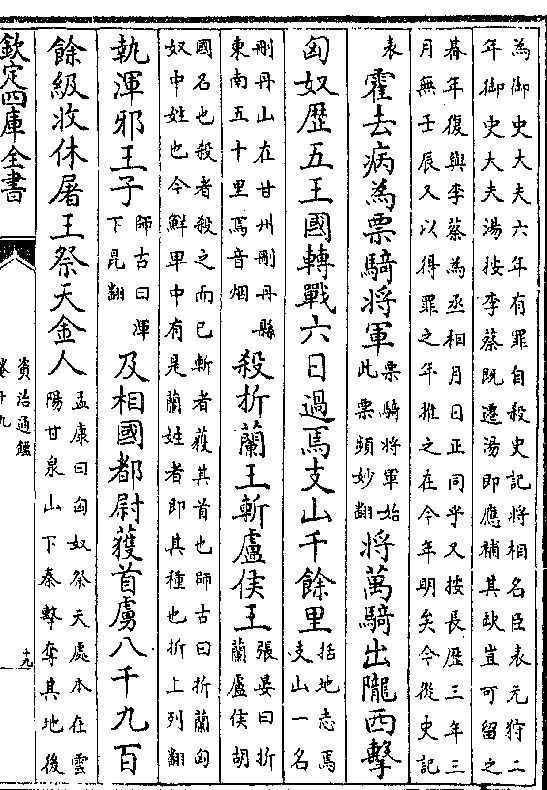 為御史大夫六年有罪自殺史記將相名臣表元狩二
年御史大夫湯按李蔡既遷湯即應補其缺豈可留之
暮年復與李蔡為丞相月日正同乎又按長歴三年三
月無壬辰又以得罪之年推之在今年明矣今從史記
表
霍去病為票騎將軍
票騎將軍始
此票頻妙翻
將萬騎出隴西擊
匈奴歴五王國轉戰六日過焉支山千餘里
括地志焉
支山一名
刪丹山在甘州刪丹縣
東南五十里焉音烟
殺折蘭王斬盧侯王
張晏曰折
蘭盧侯胡
國名也殺者殺之而已斬者獲其首也師古曰折蘭匈
奴中姓也今鮮卑中有是蘭姓者即其種也折上列翻
執渾邪王子
師古曰渾
下昆翻
及相國都尉獲首虜八千九百
餘級收休屠王祭天金人
孟康曰匈奴祭天處本在雲
陽甘泉山下秦擊奪其地後
欽定四庫全書
資治通鑑
卷十九
十九